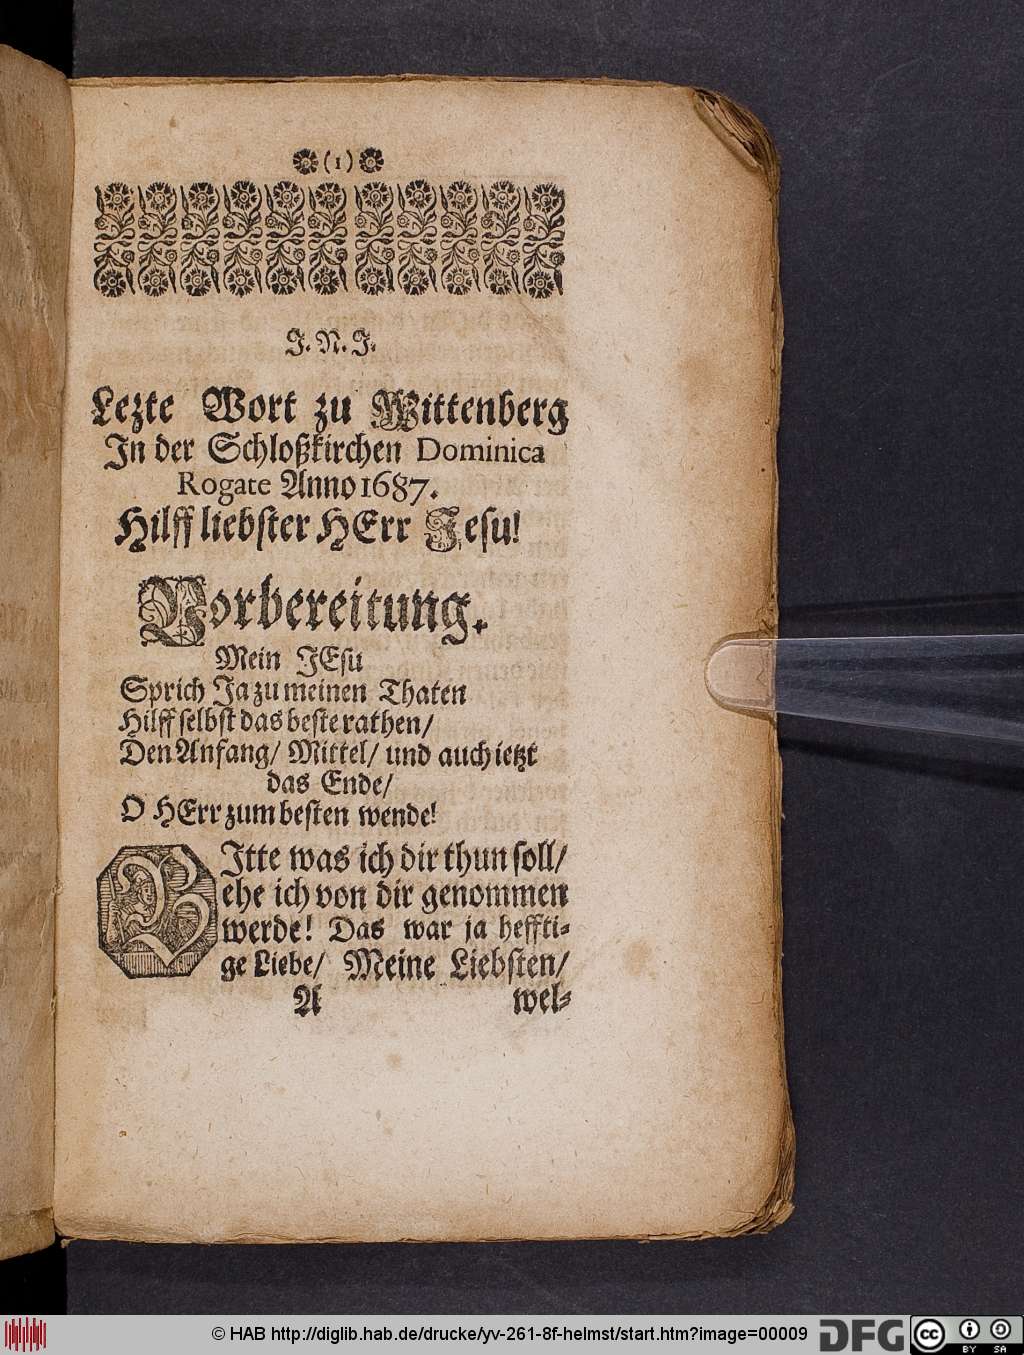 (1)
J. N. J.
Lezte Wort zu Wittenberg
In der Schloßkirchen Dominica
Rogate Anno 1687.
Hilff liebster HErr Jesu!
Vorbereitung.
Mein JEsu
Sprich Ja zu meinen Thaten
Hilff selbst das beste rathen/
Den Anfang/ Mittel/ und auch ietzt
das Ende/
O HErr zum besten wende!
BItte was ich dir thun soll/
ehe ich von dir genommen
werde! Das war ja heffti-
ge Liebe/ Meine Liebsten/
A wel-
© HAB http://diglib.hab.de/drucke/yv-261-8f-helmst/start.htm?image=00009
DFG
cc
BY SA